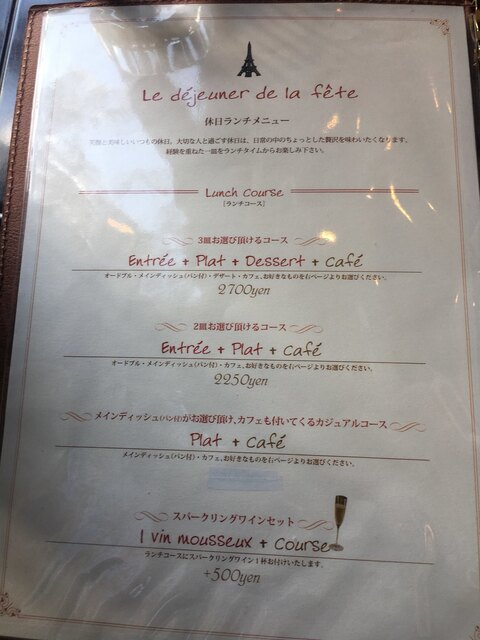 Le déjeuner de la fête
休日ランチメニュー
笑顔と美味しいいつもの休日。大切な人と過ごす休日は、日常の中のちょっとした贅沢を味わいたくなります。
経験を重ねた一皿をランチタイムからお楽しみ下さい。
Lunch Course
[ランチコース]
3皿お選び頂けるコース
Entrée + Plat + Dessert + Café
オードブル・メインディッシュ(パン付)・デザート・カフェ、お好きなものを右ページよりお選びください。
2700yen
2皿お選び頂けるコース
Entrée + Plat + Café
オードブル・メインディッシュ(パン付)・カフェ、お好きなものを右ページよりお選びください。
2250yen
メインディッシュ(パン付)がお選び頂け、カフェも付いてくるカジュアルコース
Plat + Café
メインディッシュ(パン付)・カフェ、お好きなものを右ページよりお選びください。
スパークリングワインセット
1 vin mousseux + Course
ランチコースにスパークリングワイン1杯お付けいたします。
+500yen